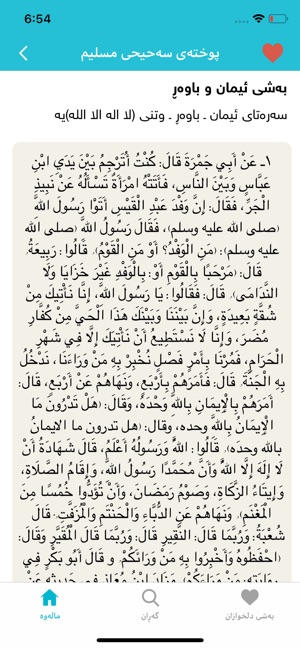 6:54
پوختەی سەحیحی مسلیم
بەشی ئیمان و باوەڕ
سەرەتای ئیمان ـ باوەڕ ـ وتنی (لا اله الا الله)یە
١ـ عَنْ أَبِي جَمْرَةَ قَالَ: كُنْتُ أُتَرْجِمُ بَيْنَ يَدَيِ ابْنِ
عَبَّاسٍ وَبَيْنَ النَّاسِ، فَأَتَتْهُ امْرَأَةٌ تَسْأَلُهُ عَنْ نَبِيذِ
الْجَرِّ، فَقَالَ: إِنَّ وَفْدَ عَبْدِ الْقَيْسِ أَتَوْا رَسُولَ اللَّهِ
(صلى الله عليه وسلم)، فَقَالَ رَسُولُ اللَّهِ (صلى الله
عليه وسلم): (مَنِ الْوَفْدُ؟ أَوْ مَنِ الْقَوْمُ). قَالُوا: رَبِيعَةُ.
قَالَ: (مَرْحَبًا بِالْقَوْمِ أَوْ: بِالْوَفْدِ غَيْرَ خَزَايَا وَلَا
النَّدَامَى). قَالَ: فَقَالُوا: يَا رَسُولَ اللَّهِ، إِنَّا نَأْتِيكَ مِنْ
شُقَّةٍ بَعِيدَةٍ، وَإِنَّ بَيْنَنَا وَبَيْنَكَ هَذَا الْحَيَّ مِنْ كُفَّارِ
مُضَرَ، وَإِنَّا لَا نَسْتَطِيعُ أَنْ نَأْتِيَكَ إِلَّا فِي شَهْرِ
الْحَرَامِ، فَمُرْنَا بِأَمْرٍ فَصْلٍ نُخْبِرْ بِهِ مَنْ وَرَاءَنَا، نَدْخُلُ
بِهِ الْجَنَّةَ. قَالَ: فَأَمَرَهُمْ بِأَرْبَعٍ، وَنَهَاهُمْ عَنْ أَرْبَعٍ، قَالَ:
أَمَرَهُمْ بِالْإِيمَانِ بِاللَّهِ وَحْدَهُ، وَقَالَ: (هَلْ تَدْرُونَ مَا
الْإِيمَانُ بِاللَّهِ وحده، وقال: هل تدرون ما الايمان
بالله وحده). قَالُوا: اللَّهُ وَرَسُولُهُ أَعْلَمُ، قَالَ شَهَادَةُ أَنْ
لَا إِلَهَ إِلَّا اللَّهُ وَأَنَّ مُحَمَّدًا رَسُولُ اللَّهِ، وَإِقَامُ الصَّلَاةِ،
وَإِيتَاءُ الزَّكَاةِ، وَصَوْمُ رَمَضَانَ، وَأَنْ تُؤَدُّوا خُمُسًا مِنَ
الْمَغْنَمِ). وَنَهَاهُمْ عَنِ الدُّبَّاءِ وَالْحَنْتَمِ وَالْمُزَفَّتِ. قَالَ
شُعْبَةُ: وَرُبَّمَا قَالَ: النَّقِيرِ قَالَ: وَرُبَّمَا قَالَ الْمُقَيَّرِ وَقَالَ:
(احْفَظُوهُ وَأَخْبِرُوا بِهِ مَنْ وَرَائَكُمْ. و قَالَ أَبُو بَكْرٍ فِي
رِوَايَتِهِ: مَنْ وَرَاءَكُمْ). وَزَادَ ابْنُ مُعَاذٍ فِي حَدِيثِهِ عَنْ
ماڵەوە
گەڕان
بەشی دڵخوازان